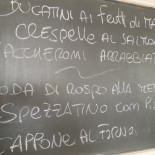 BUCATINI AI FRUTTI DI MA
CRESPELLE AL SALMO
ACCHERONI ARRABBIAT
ODA DI ROSPO ALLA
SPEZZATINO CON P
CAPPONE AL FORNO